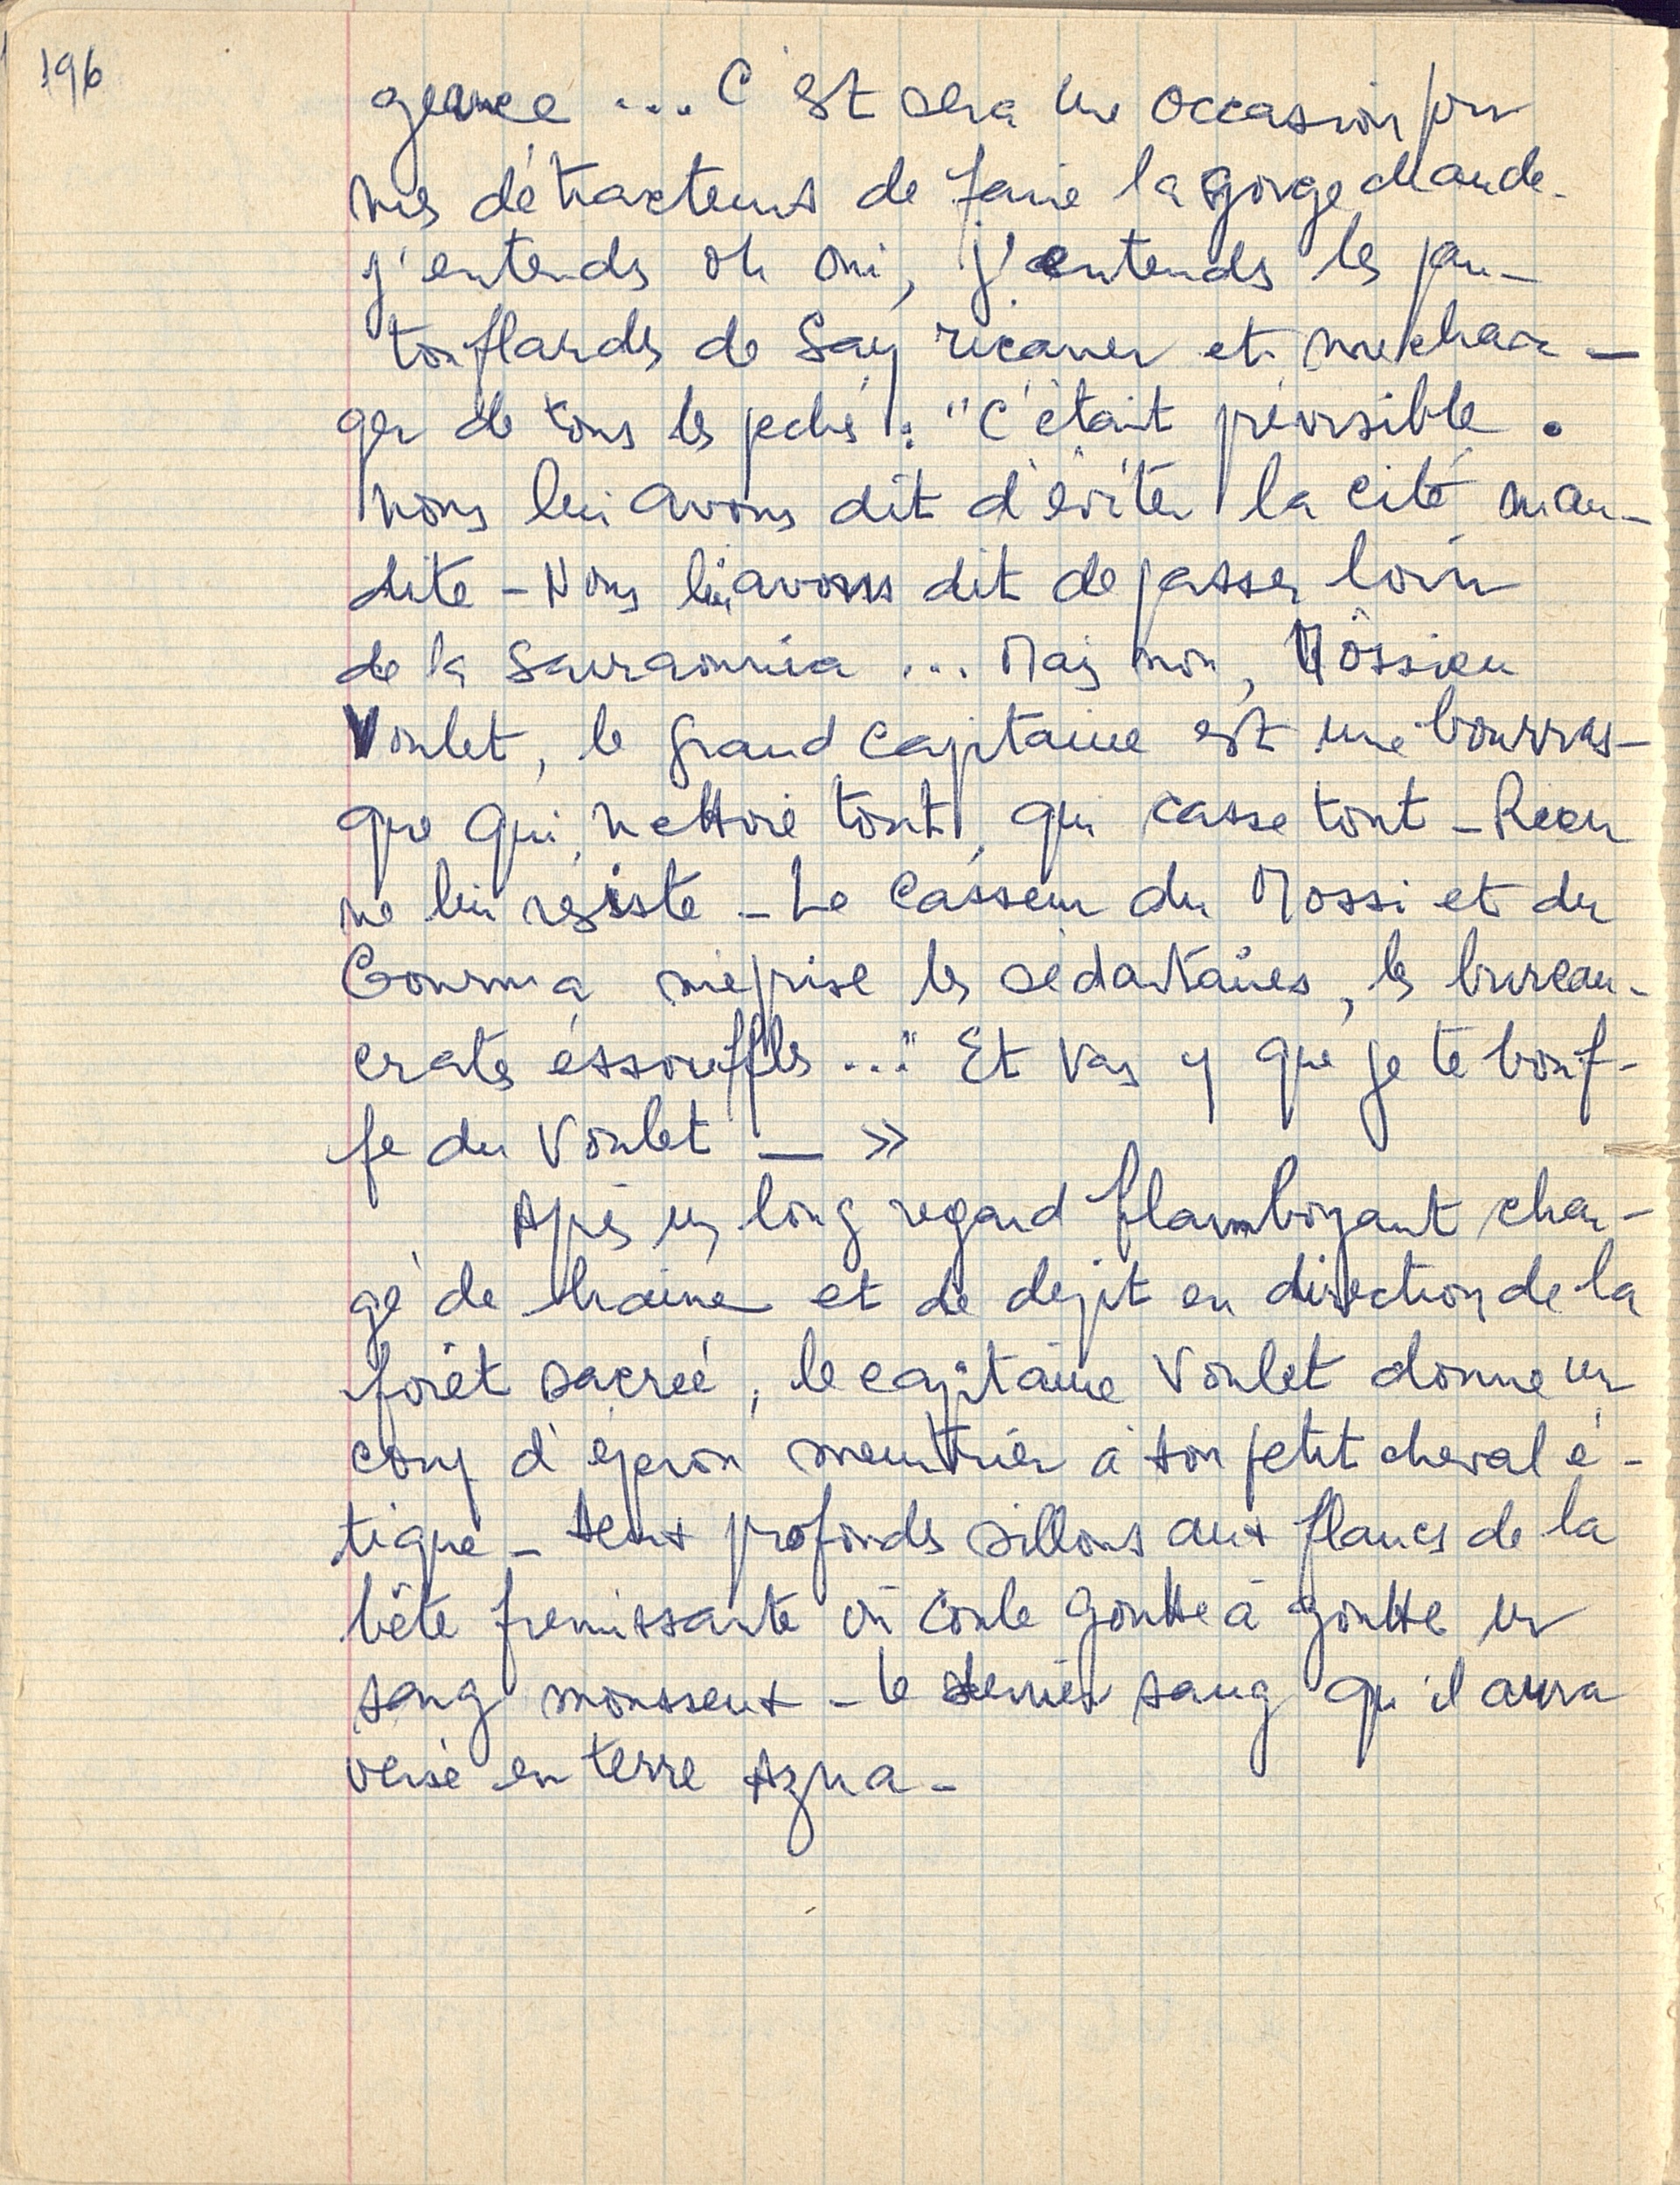 196
geance ... C'est sera une occasion pour
mes détracteurs de faire la gorge chaude.
J'entends oh oui, j'entends les pan-
touflards de Say ricaner et me char-
ger de tous les pechés : "C'était prévisible.
Nous lui avons dit d'éviter la cité mau-
dite - Nous lui avons dit de passer loin
de la Sarraounia ... Mais non, Môssieu
Voulet, le grand capitaine est une bourras-
que qui nettoie tout, qui casse tout - Rien
ne lui resiste - Le Casseur du Mossi et du
Gourma méprise les sédentaires, les bureau-
crates éssoufflés ..." Et vas y que je te bouf-
fe du Voulet _ »
Après un long regard flamboyant char-
gé de haine et de depit en direction de la
forêt sacreé, le capitaine Voulet donne un
coup d'éperon meurtrier à son petit cheval é-
tique - deux profonds sillons aux flancs de la
bête fremissante où coule goutte à goutte un
sang mousseux - le dernier sang qu'il aura
versé en terre Azna -